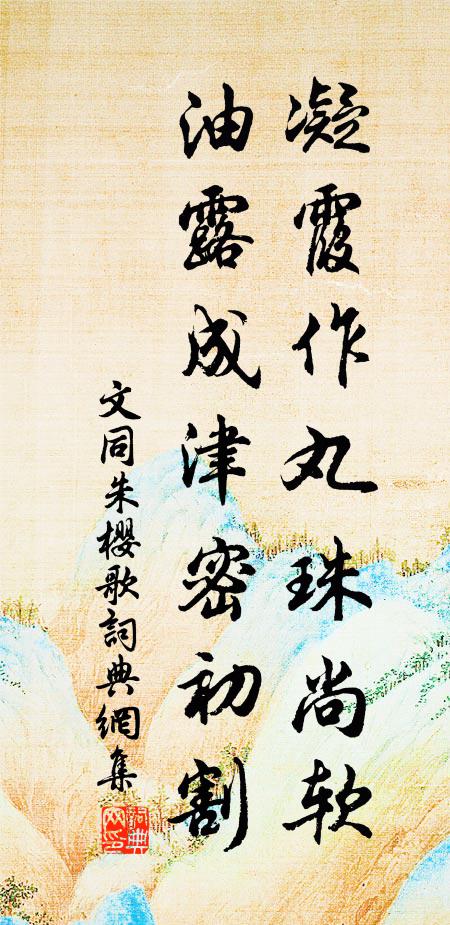 凝霞作丸珠尚软
油露成津密初割
文同朱樱歌詞典網集
詞典
网印